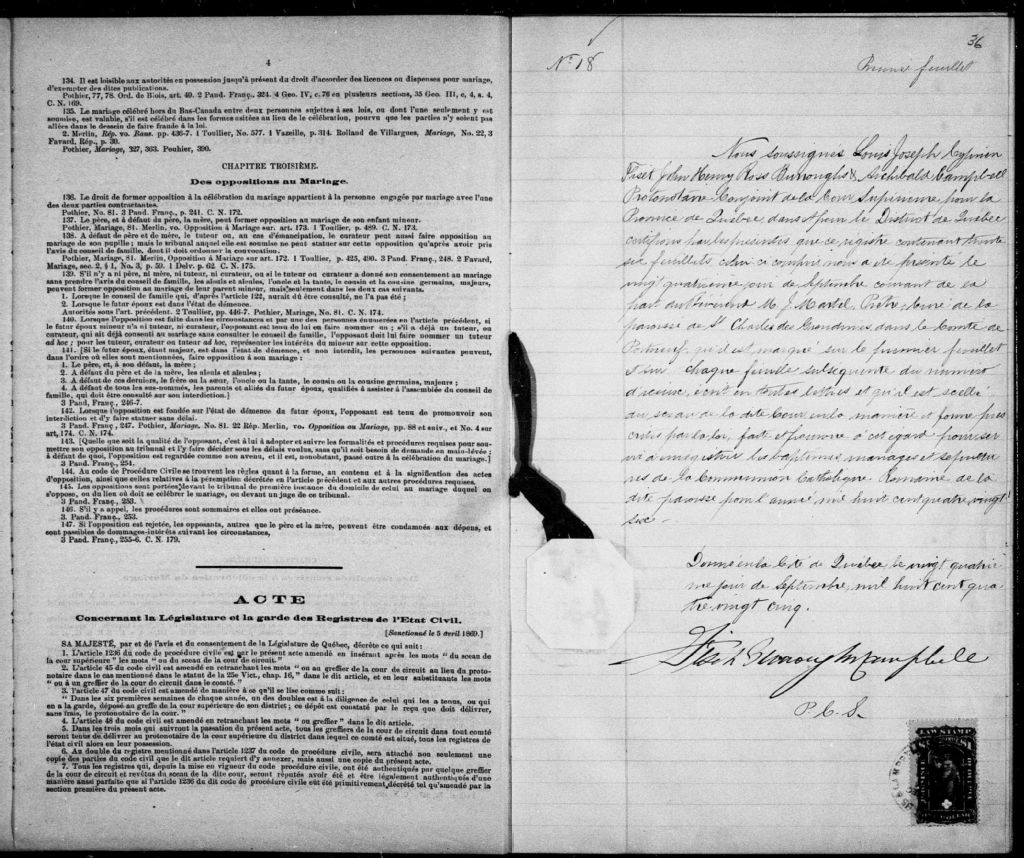 4
134. Il est loisible aux autorités en possession jusqu'à présent du droit d'accorder des licences ou dispenses pour mariage,
d'exempter des dites publications.
Pothier, 77, 78. Ord. de Blois, art. 40. 2 Pand. Franç.. 324. 4 Geo. IV, c. 76 en plusieurs sections, 35 Geo. III, c, 4, s. 4,
C. N. 169.
135. Le mariage célébré hors du Bas-Canada entre deux personnes sujettes à ses lois, ou dont l'une seulement y est
soumise, est valable, s'il est célébré dans les formes usitées au lieu de la célébration, pourvu que les parties n'y soient pas
allées dans le dessein de faire fraude à la loi.
2. Merlin, Rép. vo. Bans. pp. 436-7. 1 Toullier, No. 577. 1 Vazeille, p. 314. Rolland de Villargues, Mariage, No. 22, 3
Favard, Rép., p. 30.
Pothier, Mariage, 327, 363. Pouhier, 390.
CHAPITRE TROISIÈME.
Des oppositions au Mariage.
136. Le droit de former opposition à la célébration du mariage appartient à la personne engagée par mariage avec l'une
des deux parties contractantes.
Pothier, No. 81. 3 Pand. Franç., p. 241. C. N. 172.
137. Le père, et à défaut du père, la mère, peut former opposition au mariage de son enfant mineur.
Pothier, Mariage, 81. Merlin, vo. Opposition à Mariage sur. art. 173. 1 Toullier, p. 489. C. N. 173.
138. A défaut de père et de mère, le tuteur ou, au cas d'émancipation, le curateur peut aussi faire opposition au
mariage de son pupille; mais le tribunal auquel elle est soumise ne peut statuer sur cette opposition qu'après avoir pris
l'avis du conseil de famille, dont il doit ordonner la convocation.
Pothier, Mariage, 81. Merlin, Opposition au Mariage sur art. 172. 1 Toullier, p. 425, 490. 3 Pand. Franç., 248. 2 Favard,
Mariage, sec. 2, § 1, No. 3, p. 59. 1 Delv. p. 62. C. N. 175.
139. S'il n'y a ni père, ni mère, ni tuteur, ni curateur, ou si le tuteur ou curateur a donné son consentement au mariage
sans prendre l'avis du conseil de famille, les aïeuls et aïeules, l'oncle et la tante, le cousin et la cousine germains, majeurs,
peuvent former opposition au mariage de leur parent mineur, mais seulement dans les deux cas suivants.
1. Lorsque le conseil de famille qui, d'après l'article 122, aurait dû être consulté, ne l'a pas été;
2. Lorsque le futur époux est dans l'état de démence.
Autorités sous l'art. précédent. 2 Toullier, pp. 446-7. Pothier, Mariage, No. 81. C. N. 174.
140. Lorsque l'opposition est faite dans les circonstances et par une des personnes énumérées en l'article précédent, si
le futur époux mineur n'a ni tuteur, ni curateur, l'opposant est tenu de lui en faire nommer un; s'il a déjà un tuteur, ou
curateur, qui ait déjà consenti au mariage sans consulter le conseil de famille, l'opposant doit lui faire nommer un tuteur
ad hoc; pour les tuteur, curateur ou tuteur ad hoc, représenter les intérêts du mineur sur cette opposition.
141. [Si le futur époux, étant majeur, est dans l'état de démence, et non interdit, les personnes suivantes peuvent,
dans l'ordre où elles sont mentionnées, faire opposition à son mariage:
1. Le père, et, à son défaut, la mère;
2. A défaut du père et de la mère, les aïeuls et aïeules;
3. A défaut de ces derniers, le frère ou la sœur, l'oncle ou la tante, le cousin ou la cousine germains, majeurs;
4. A défaut de tous les sus-nommés, les parents et alliés du futur époux, qualifiés à assister à l'assemblée du conseil de
famille, qui doit être consulté sur son interdiction.]
3 Pand. Franç., 246-7.
142. Lorsque l'opposition est fondée sur l'état de démence du futur époux, l'opposant est tenu de promouvoir son
interdiction et d'y faire statuer sans délai.
3 Pand. Franç., 247. Pothier, Mariage, No. 81. 22 Rép. Merlin, vo. Opposition au Mariage, pp. 88 et suiv., et No. 4 sur
art, 174. C. N. 174.
143. [Quelque soit la qualité de l'opposant, c'est à lui à adopter et suivre les formalités et procédures requises pour sou-
mettre son opposition au tribunal et l'y faire décider sous les délais voulus, sans qu'il soit besoin de demande en main-levée;
à défaut de quoi, l'opposition est regardée comme non avenu, et il est, nonobstant, passé outre à la célébration du mariage.]
3 Pand. Franç., 254.
144. Au code de Procédure Civile se trouvent les règles quant à la forme, au contenu et à la signification des actes
d'opposition, ainsi que celles relatives à la péremption décrétée en l'article précédent et aux autres procédures requises.
145. Les oppositions sont portées devant le tribunal de première instance du domicile de celui au mariage duquel on
s'oppose, ou du lieu où doit se célébrer le mariage, ou devant un juge de ce tribunal.
3 Pand. Franç., 253.
146. S'il y a appel, les procédures sont sommaires et elles ont préséance.
3. Pand. Franç., 253.
147. Si l'opposition est rejetée, les opposants, autres que le père et la mère, peuvent être condamnés aux dépens, et
sont passibles de dommages-intérêts suivant les circonstances,
3 Pand. Franç., 255-6. C. N. 179.
ACTE
Concernant la Législature et la garde des Registres de l'Etat Civil.
[Sanctionné le 5 avril 1869.]
SA MAJESTÉ, par et de l'avis et du consentement de la Législature de Québec, décrète ce qui suit:
1. L'article 1236 du code de procédure civile est par le présent acte amendé en insérant après les mots "du sceau de
la cour supérieure" les mots "ou du sceau de la cour de circuit."
2. L'article 45 du code civil est amendé en retranchant les mots "ou au greffier de la cour de circuit au lieu du proto-
notaire dans le cas mentionné dans le statut de la 25e Vict., chap. 16," dans le dit article, et en leur substituants les mots
"ou à un greffier de la cour de circuit dans le comté."
3. l'article 47 du code civil est amendé de manière à ce qu'il se lise comme suit:
"Dans les six premières semaines de chaque année, un des doubles est à la diligence de celui qui les a tenus, ou qui
en a la garde, déposé au greffe de la cour supérieure de son district; ce dépôt est constaté par le reçu que doit délivrer,
sans frais, le protonotaire de la cour."
4. L'article 48 du code civil est amendé en retranchant les mots "ou greffier" dans le dit article.
5. Dans les trois mois qui suivront la passation du présent acte, tous les greffiers de la cour de circuit dans tout comté
seront tenus de délivrer au protonotaire de la cour supérieure du district dans lequel ce comté est situé, tous les registres de
l'état civil alors en leur possession.
6. Au double du registre mentionné dans l'article 1237 du code de procédure civile, sera attaché non seulement une
copie des parties du code civil que le dit article requiert d'y annexer, mais aussi une copie du présent acte.
7. Tous les registres qui, depuis la mise en vigueur du code de procédure civile, ont été authentiqués par quelque greffier
de la cour de circuit et revêtus du sceau de la dite cour, seront réputés avoir été et être légalement authentiqués d'une
manière aussi parfaite que si l'article 1236 du dit code de procédure civile eût été primitivement décrété tel qu'amendé par la
section première du présent acte.
36
No 18
Premier feuillet
Nous soussignés Louis Joseph Cyprien
Fiset John Henry Ross Burroughs & Archibald Campbell
Protonotaire Conjoint de la Cour Supérieure pour la
Province de Québec dans et pour le District de Québec
certifions par les présentes que ce registre contenant trente
six feuillets celui ci compris nous a été présenté le
vingt quatrième jour de Septembre courant de la
part du Révérend M. J. Martel, Ptre Curé de la
paroisse de St Charles des Grondines dans le Comté de
Portneuf, qu'il est marqué sur le premier feuillet
& sur chaque feuille subséquente du numéro
d'icelui, écrit en toutes lettres et qu'il est scellé
du sceau de la dite Cour en la manière et forme pres
crites par la loi, faite et pourvue à cet égard pour ser
vir à enregistrer les baptêmes mariages et sépultu
res de la Communion Catholique Romaine de la
dite paroisse pour l'année, mil huit cent quatre vingt
six —
Donné en la Cité de Québec, le vingt quatriè
me jour de Septembre, mil huit cent qua
tre vingt cinq.
Fiset Burroughs Campbell
P. C. S.
LAW STAMP